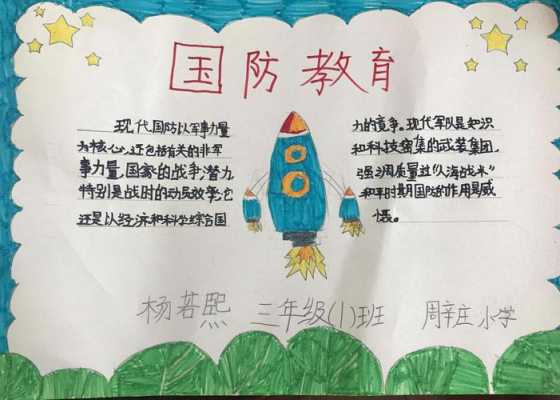 国防教育
现代国防以军事力量
为核心，还包括有关的非军
事力量，国家的战争潜力
特别是战时的动员效率；它
还是以经济和科学综合国
力的竞争。现代军队是知识
和科技密集的武装集团，
强调质量过"人海战术"
和平时期国防的作用是威
慑。
杨若熙 三年级(1)班 周辛庄小学